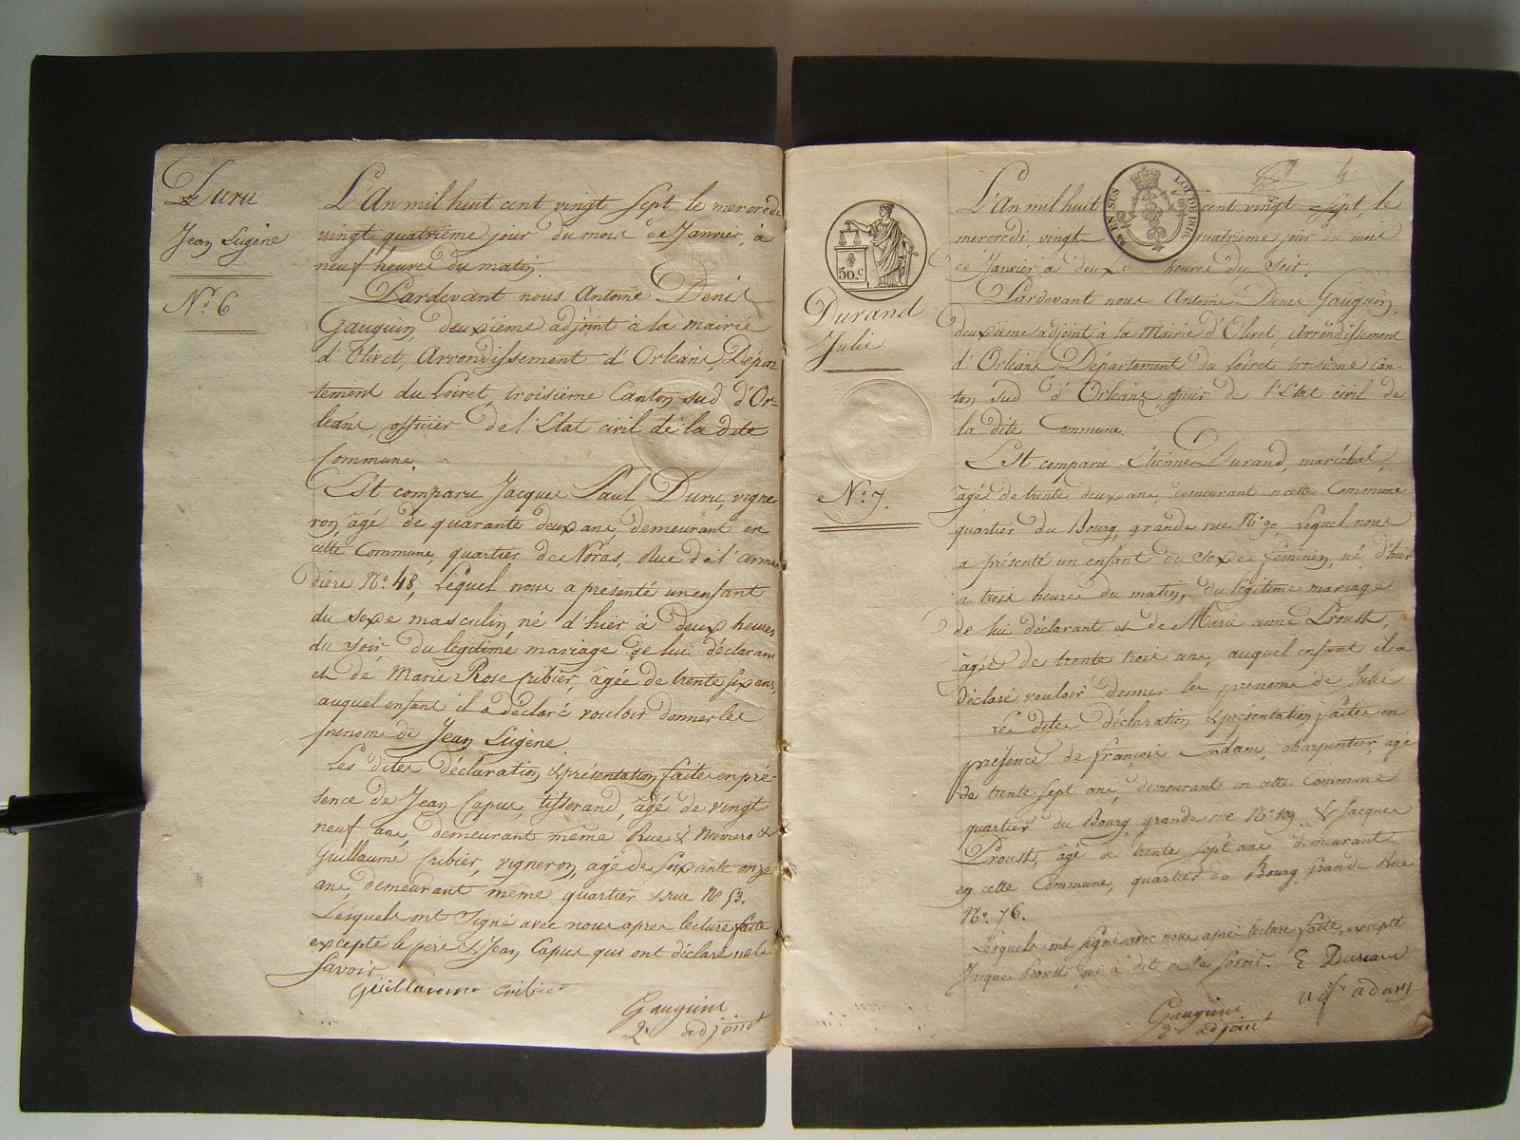 Duru
Jean Eugène
N° 6
L'An mil huit cent vingt sept, le mercredi
vingt quatrième jour du mois de Janvier, à
neuf heures du matin.
Pardevant nous Antoine Denis
Gauguin, deuxième adjoint à la mairie
d'Olivet, Arrondissement d'Orléans, Dépar-
tement du Loiret, troisième Canton sud d'Or-
léans, officier de l'Etat civil de la dite
Commune.
Est comparu Jacques Paul Duru, vigne-
ron, âgé de quarante deux ans, demeurant en
cette Commune, quartier de Noras, Rue de l'
dière N° 48, lequel nous a présenté un enfant
du sexe masculin, né d'hier à deux heures
du soir du légitime mariage de lui déclarant
et de Marie Rose Cribier, âgée de trente six ans,
auquel enfant il a déclaré vouloir donner les
prénoms de Jean Eugène.
Les dites déclaration & présentation faites en pré-
sence de Jean Capus, tisserand, âgé de vingt
neuf ans, demeurant même Rue & Numéro &
Guillaume Cribier, vigneron, âgé de soixante onze
ans, demeurant même quartier & rue N° 53.
Lesquels ont signé avec nous après lecture faite
excepté le père & Jean Capus qui ont déclaré ne le
savoir.
Guillaume cribier
Gauguin
2e adjoint
50.c
Durand
Julie
N° 7.
L'An mil huit cent vingt sept, le
mercredi vingt quatrième jour du mois
de Janvier à deux heures du soir.
Pardevant nous Antoine Denis Gauguin,
deuxième adjoint à la Mairie d'Olivet, Arrondissement
d'Orléans Département du Loiret troisième Can-
ton sud d'Orléans, officier de l'Etat civil de
la dite Commune.
Est comparu Etienne Durand, maréchal,
âgé de trente deux ans, demeurant en cette Commune
quartier du Bourg, grande rue N° 90, lequel nous
a présenté un enfant du sexe féminin, né d'hier
a trois heures du matin, du légitime mariage
de lui déclarant et de Marie anne Proust,
âgée de trente trois ans, auquel enfant il a
déclaré vouloir donner les prénoms de Julie
Les dites déclaration & présentation faites en
présence de françois adam, charpentier, agé
de trente sept ans, demeurant en cette Commune
quartier du Bourg grande rue N° 109 & Jacques
Proust, âgé de trente sept ans demeurant
en cette Commune, quartier du Bourg grande Rue
N° 76.
Lesquels ont signé avec nous après lecture faite, excepté
Jacques Proust qui a dit ne le savoir. E Durand
adam
Gauguin
2e adjoint